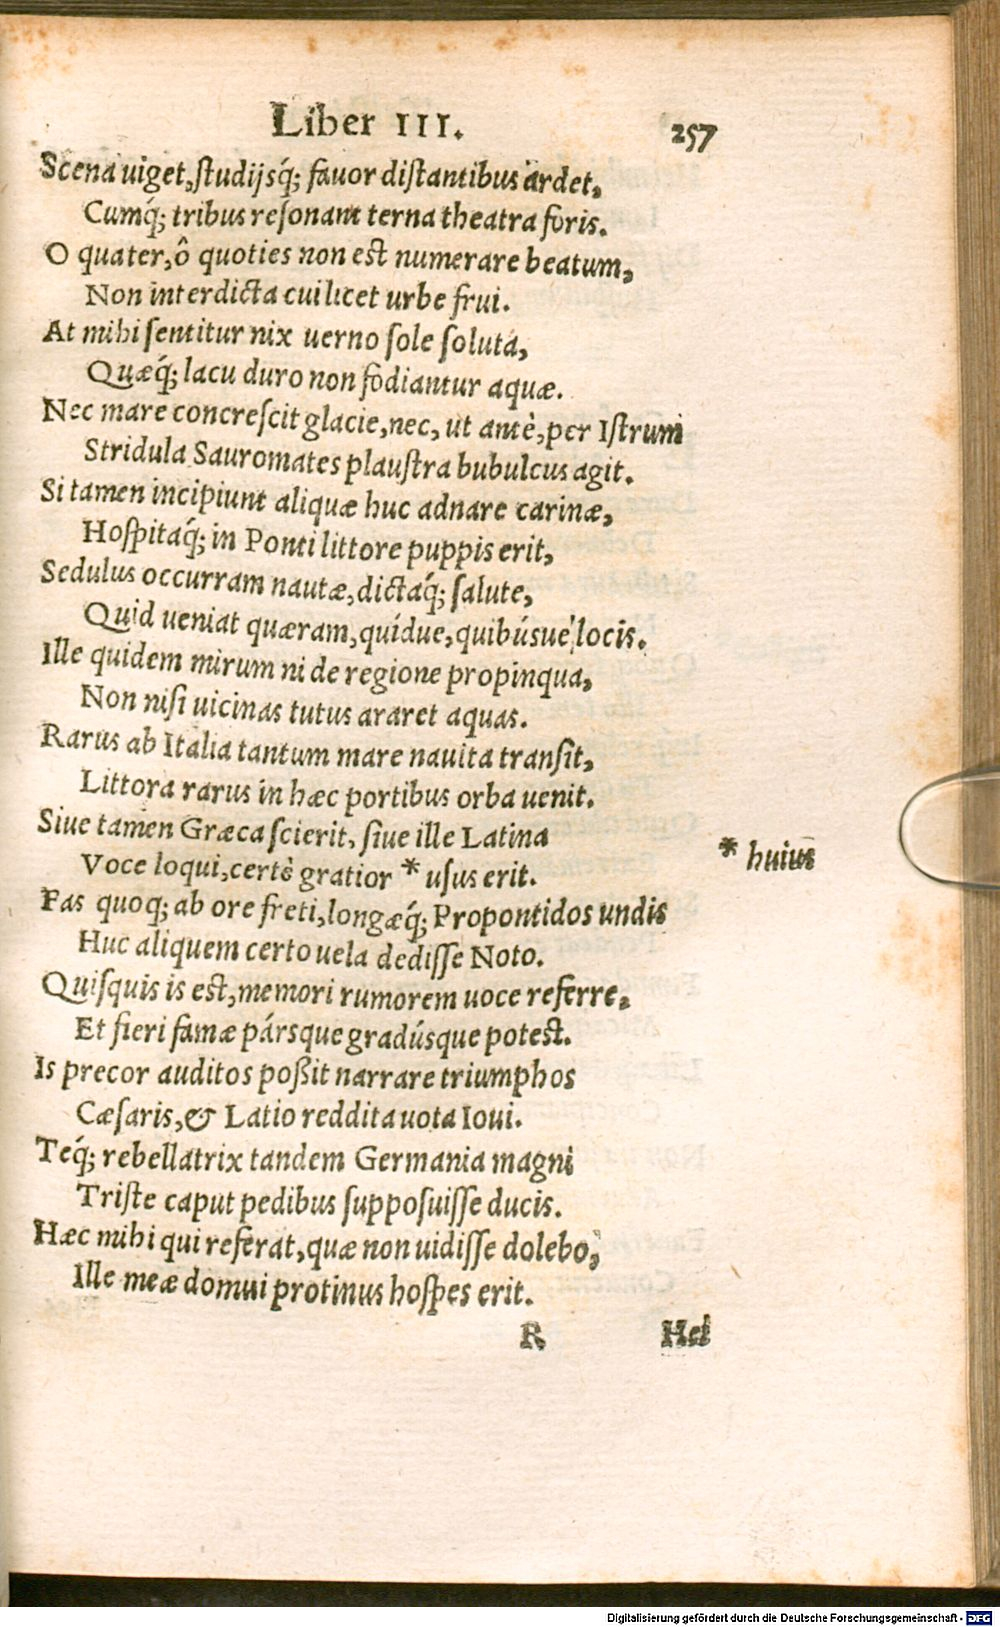 Liber III. 257
Scena uiget, studijsq́; fauor distantibus ardet,
Cumq́; tribus resonant terna theatra foris.
O quater, ô quoties non est numerare beatum,
Non interdicta cui licet urbe frui.
At mihi sentitur nix uerno sole soluta,
Quæq́; lacu duro non fodiantur aquæ.
Nec mare concrescit glacie, nec, ut antè, per Istrum
Stridula Sauromates plaustra bubulcus agit.
Si tamen incipiunt aliquæ huc adnare carinæ,
Hospitaq́; in Ponti littore puppis erit,
Sedulus occurram nautæ, dictaq́; salute,
Quid ueniat quæram, quídue, quibúsue locis.
Ille quidem mirum ni de regione propinqua,
Non nisi uicinas tutus araret aquas.
Rarus ab Italia tantum mare nauita transit,
Littora rarus in hæc portibus orba uenit.
Siue tamen Græca scierit, siue ille Latina
Voce loqui, certè gratior * usus erit.
* huius
Fas quoq; ab ore freti, longæq́; Propontidos undis
Huc aliquem certo uela dedisse Noto.
Quisquis is est, memori rumorem uoce referre,
Et fieri famæ pársque gradúsque potest.
Is precor auditos poßit narrare triumphos
Cæsaris, & Latio reddita uota Ioui.
Teq́; rebellatrix tandem Germania magni
Triste caput pedibus supposuisse ducis.
Hæc mihi qui referat, quæ non uidisse dolebo,
Ille meæ domui protinus hospes erit.
R Hei
Digitalisierung gefördert durch die Deutsche Forschungsgemeinschaft - DFG